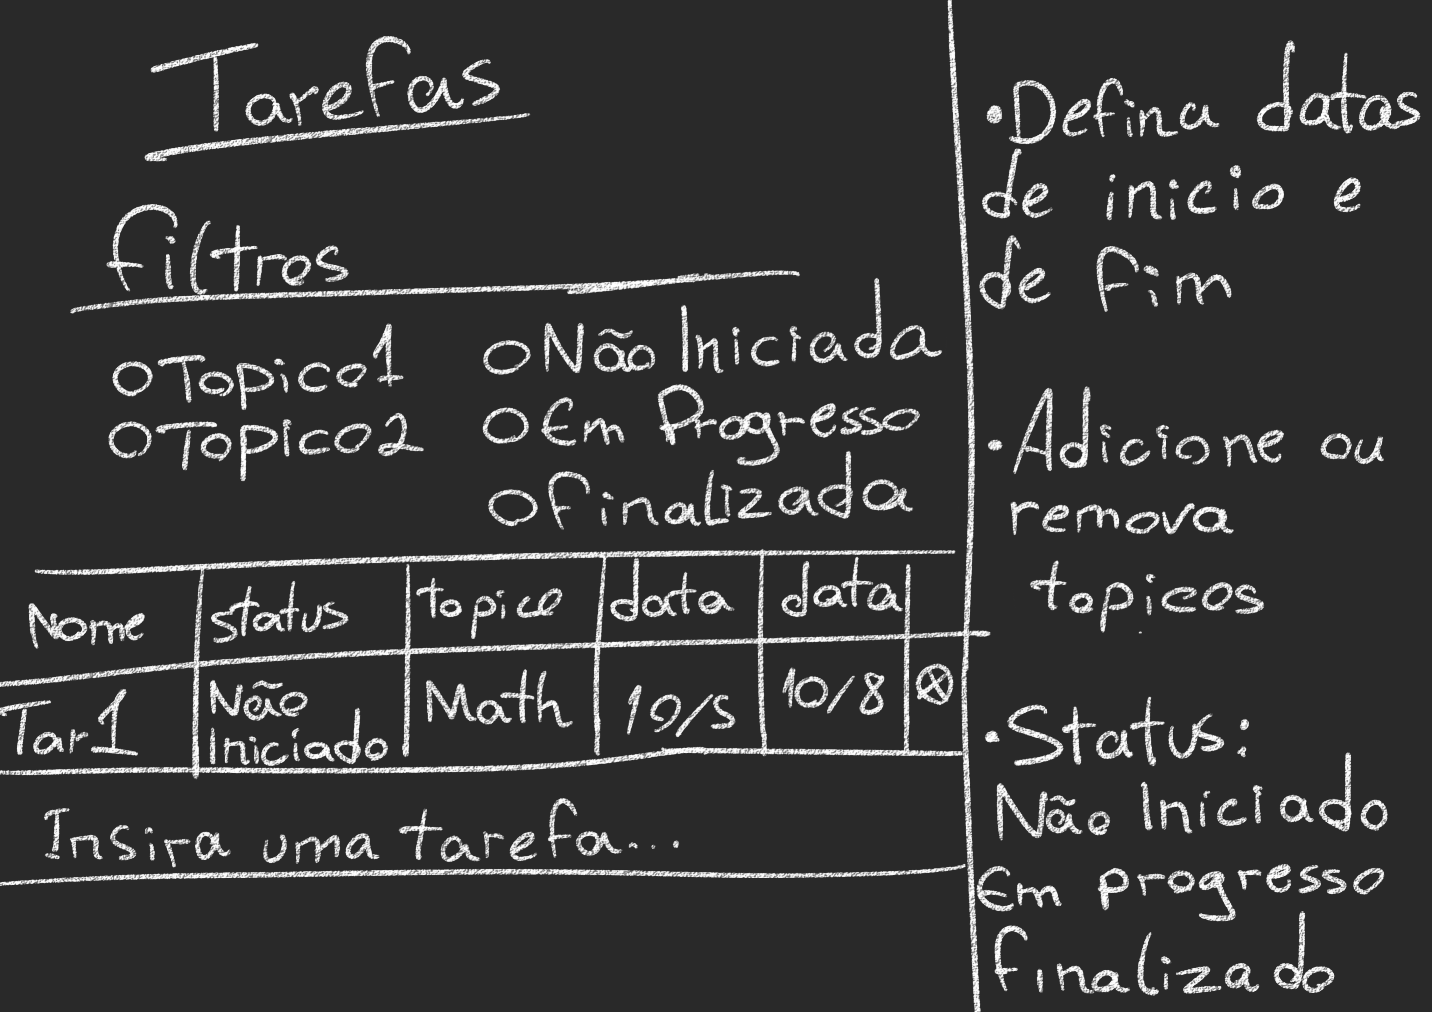 Tarefas
Filtros
Topico1
Topico2
Não Iniciada
Em Progresso
Finalizada
Nome status topico data data
Tar1 Não Iniciado Math 10/5 10/8
Insira uma tarefa...
•Defina datas
de inicio e
de fim
•Adicione ou
remova
topicos
•Status:
Não Iniciado
Em progresso
finalizado